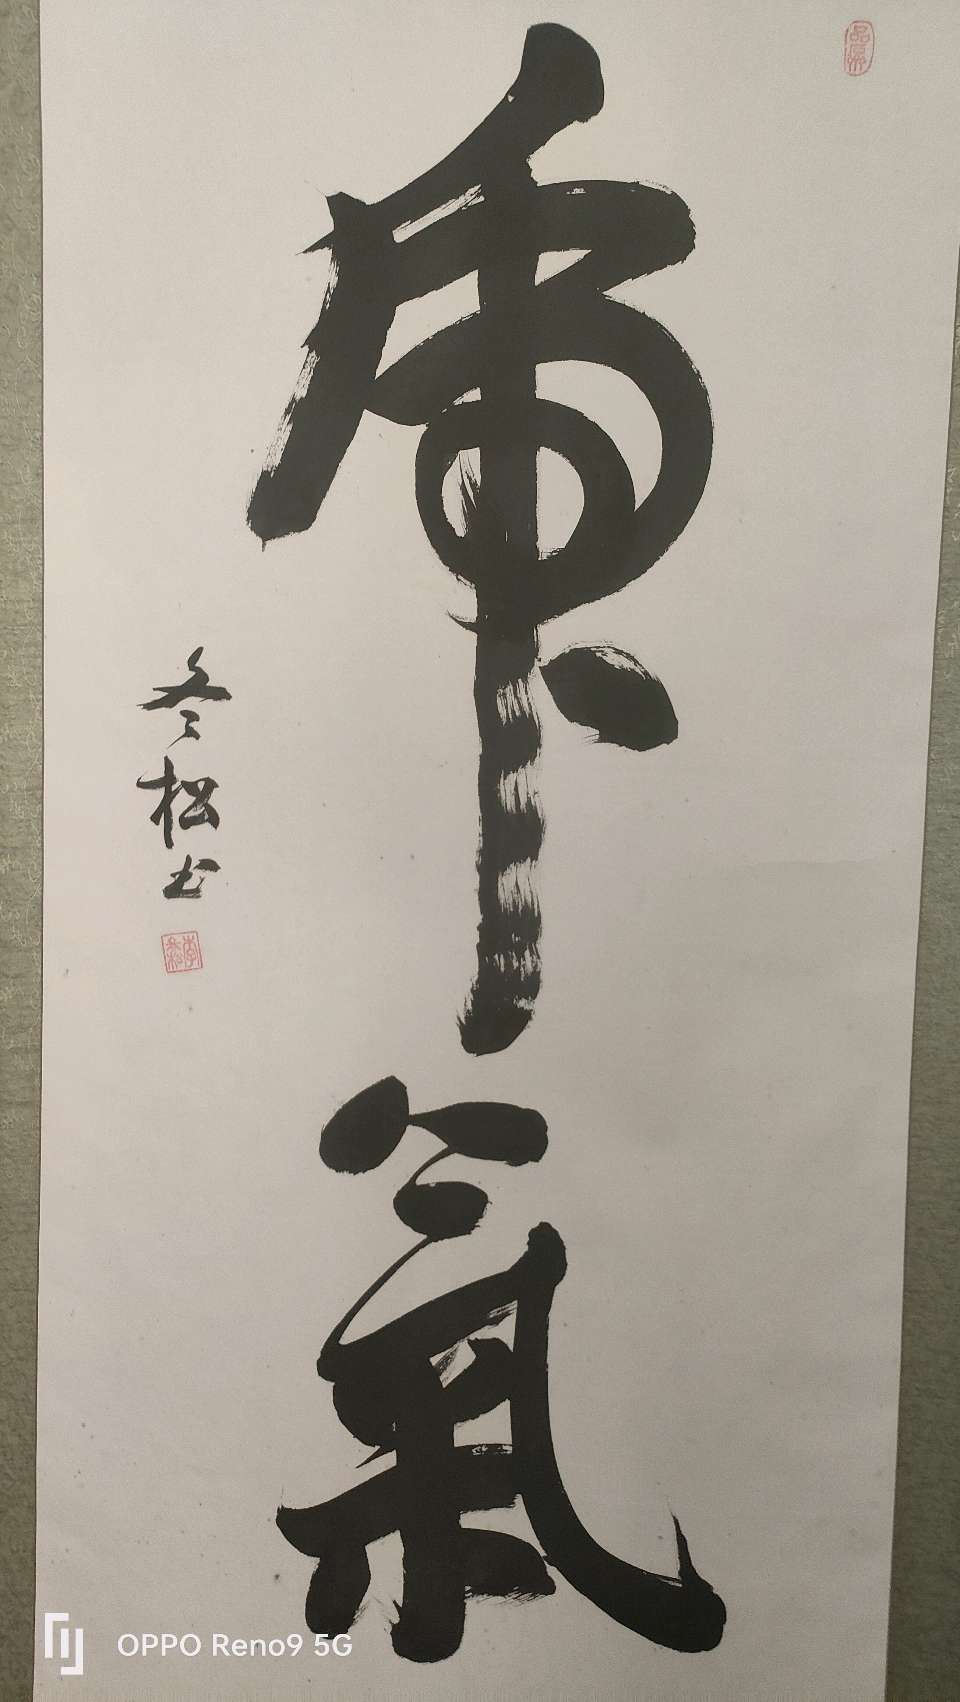 虎氣
冬松书
OPPO Reno9 5G